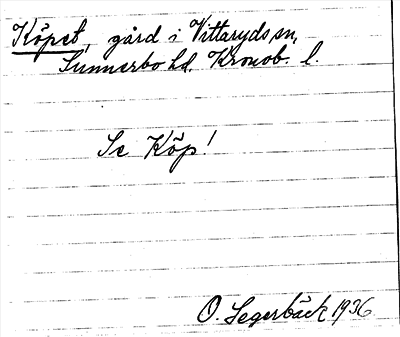 Köpet, gård i Vittaryds sn,
Sunnerbo hd. Kronob. l.
Se Köp!
O. Segerbäck 1936